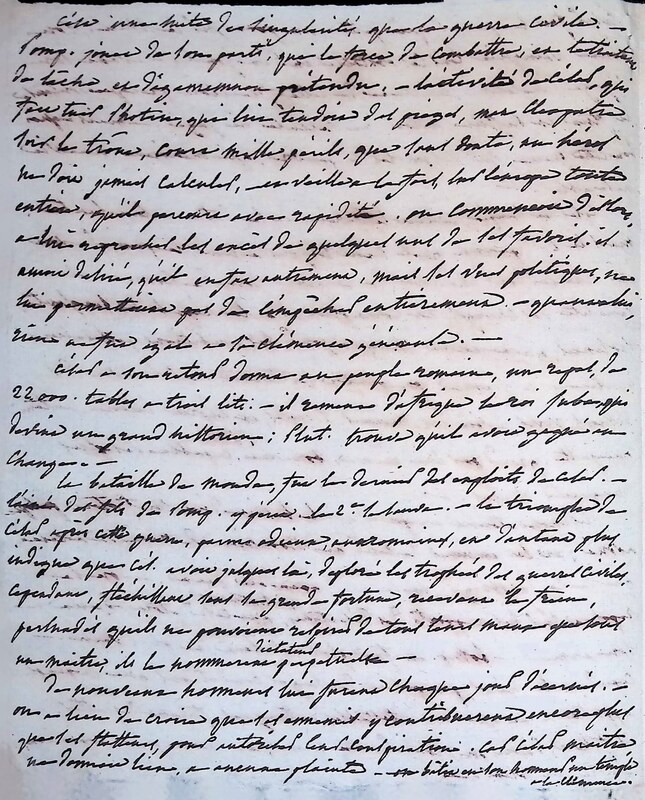 c'est une suite de singularités que la guerre civile. —
Pomp. jouet de son parti, qui le force de combattre, en le traitant
de lâche et d'agamemnon prétendu, — l'activité de César, qui
fait tuer Photin, qui lui tendoit des pièges, met Cleopatre
sur le trône, court mille périls, que sans doute, un héros
ne doit jamais calculer, — en veille à la fois, sur l'europe toute
entière, qu'il parcourt avec rapidité. on commençoit dès lors,
à lui reprocher les excès de quelques uns de ses favoris. il
auroit désiré, qu'il en fut autrement, mais ses vues politiques, ne
lui permettoient pas de l'empêcher entièrement. — quant à lui,
rien ne fut égal à sa clémence générale. —
César à son retour donna au peuple romain, un repas, de
22000. tables à trois lits. — il ramena d'afrique le roi Juba, qui
devint un grand historien ; Plut. trouve qu'il avoit gagné au
change. —
la bataille de Monda, fut le dernier des exploits de César. —
l'ainé des fils de Pomp. y périt. le 2e. se sauva. — le triomphe de
César après cette guerre, parut odieux, aux romains, et d'autant plus
indigne que Cés. avoit jusques là, déploré les trophées des guerres civiles,
cependant, fléchissant sous sa grande fortune, recevant le frein,
persuadés qu'ils ne pouvoient respirer de tous leurs maux que sous
un maitre, ils le nommèrent dictateur perpetuelle —
de nouveaux honneurs lui furent chaque jour décernés. —
on a lieu de croire que ses ennemis y contribuerent encore plus
que ses flatteurs, pour autoriser leur conspiration. car César maitre
ne donnoit lieu, à aucune plainte — on bâtit en son honneur un temple
à la clémence.